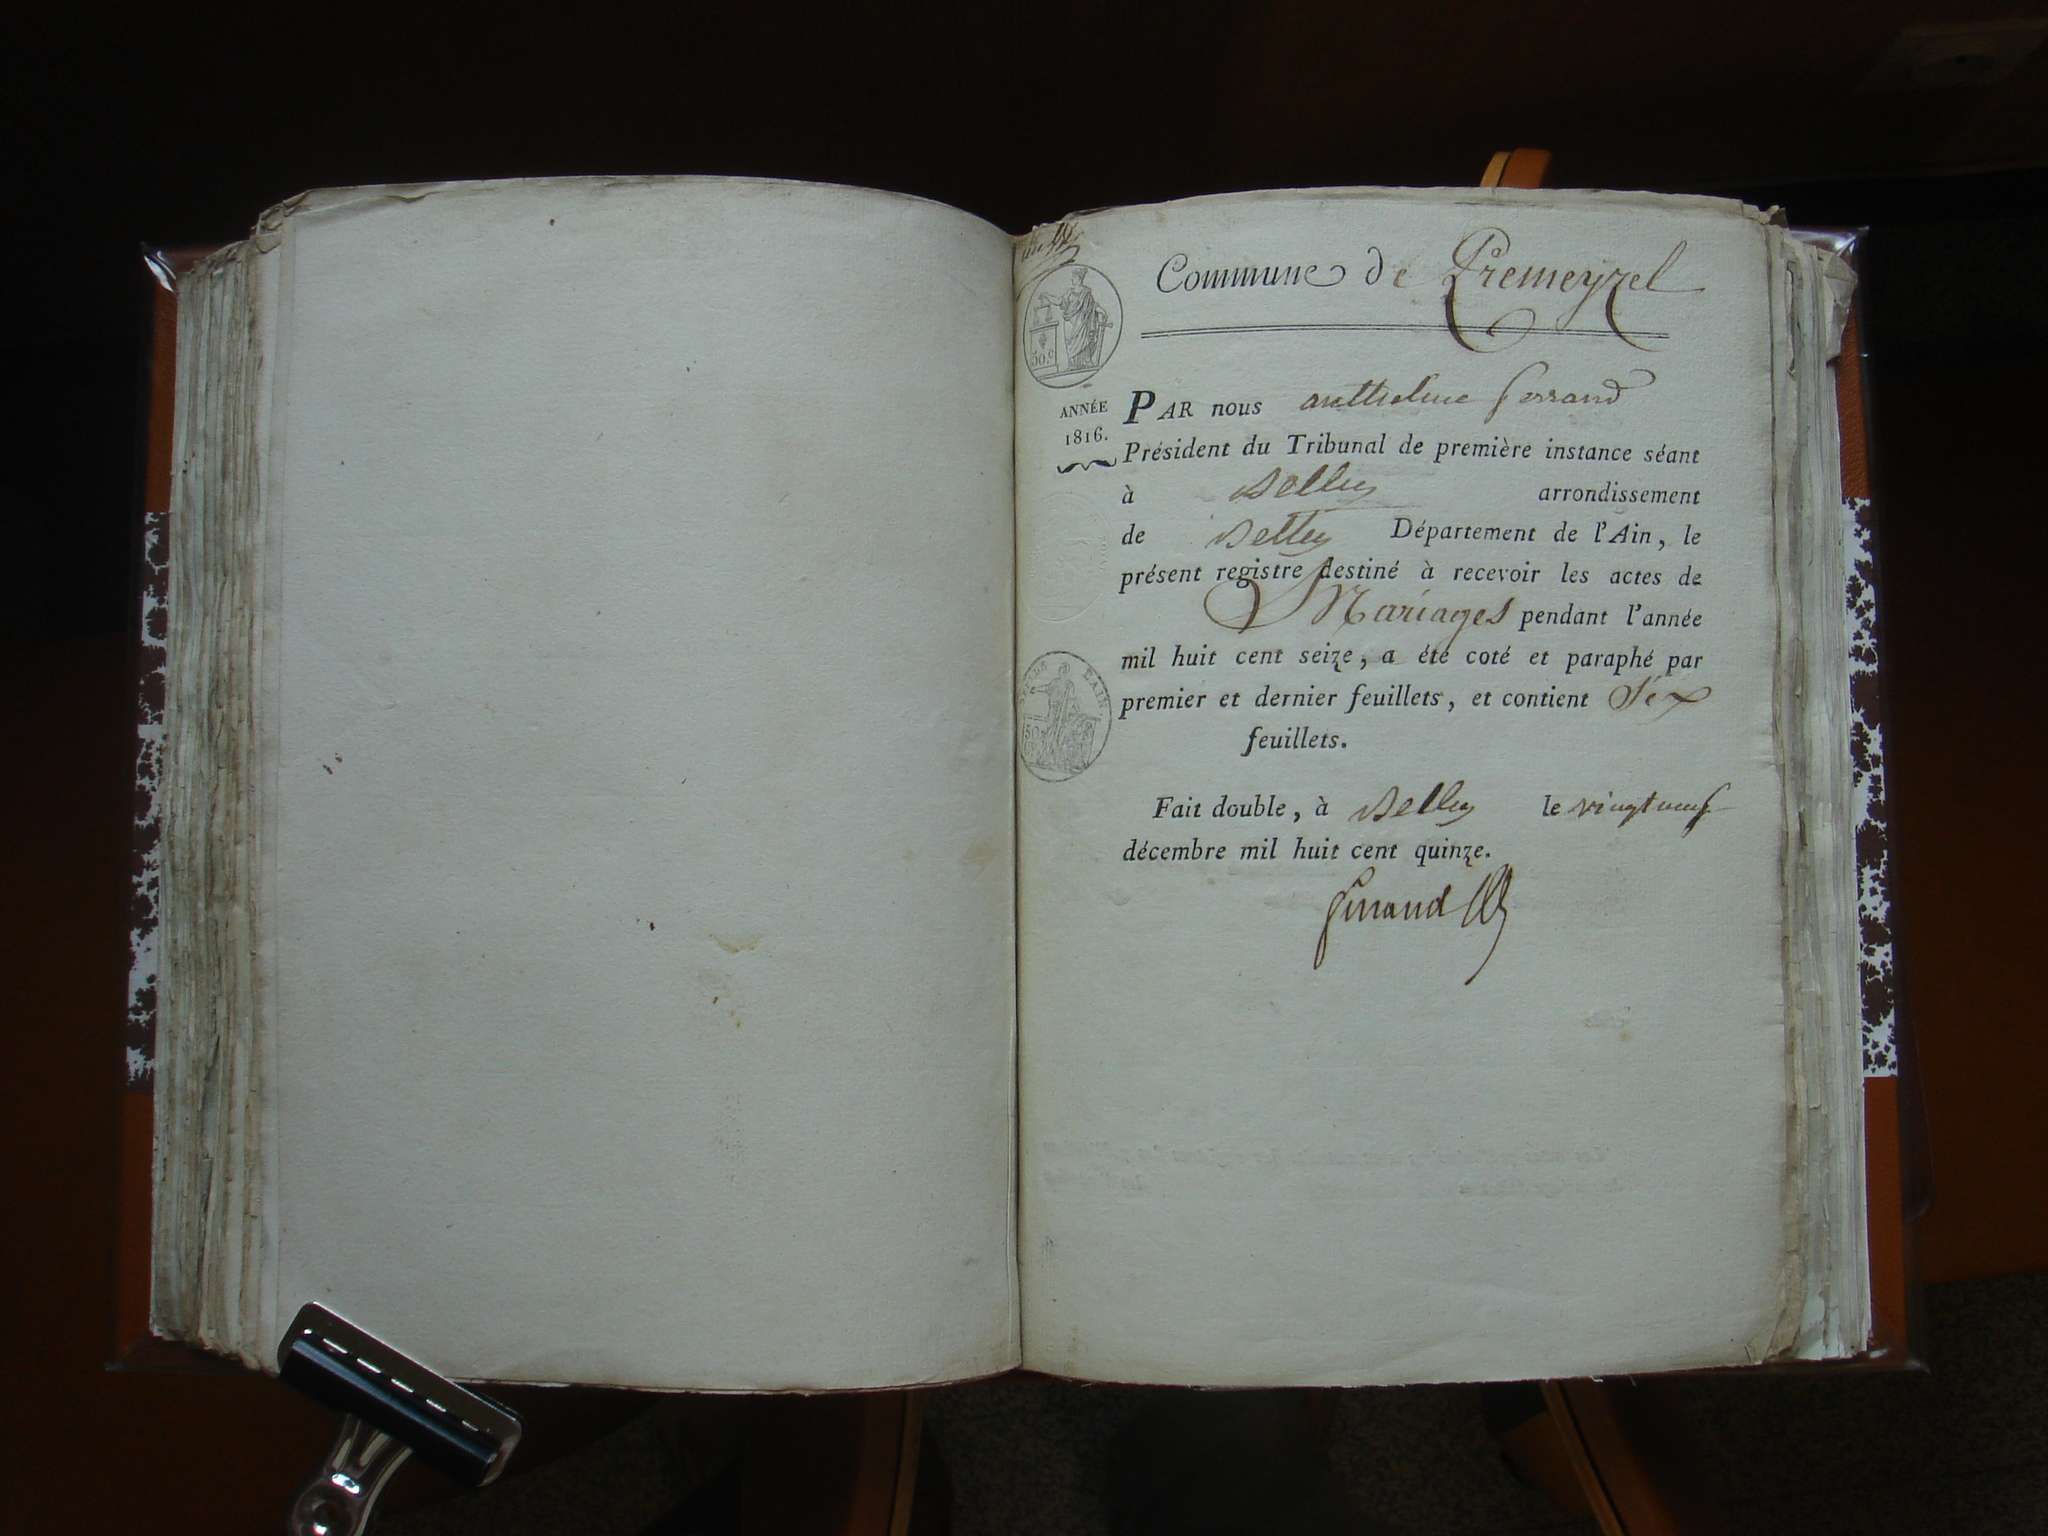 Commune de Premeyzel
50.c
ANNÉE
1816.
PAR nous anthelme ferrand
Président du Tribunal de première instance séant
à Belley arrondissement
de Belley Département de l'Ain, le
présent registre destiné à recevoir les actes de
Mariages pendant l'année
mil huit cent seize, a été coté et paraphé par
premier et dernier feuillets, et contient Six
feuillets.
Fait double, à Belley le vingt neuf
décembre mil huit cent quinze.
ferrand